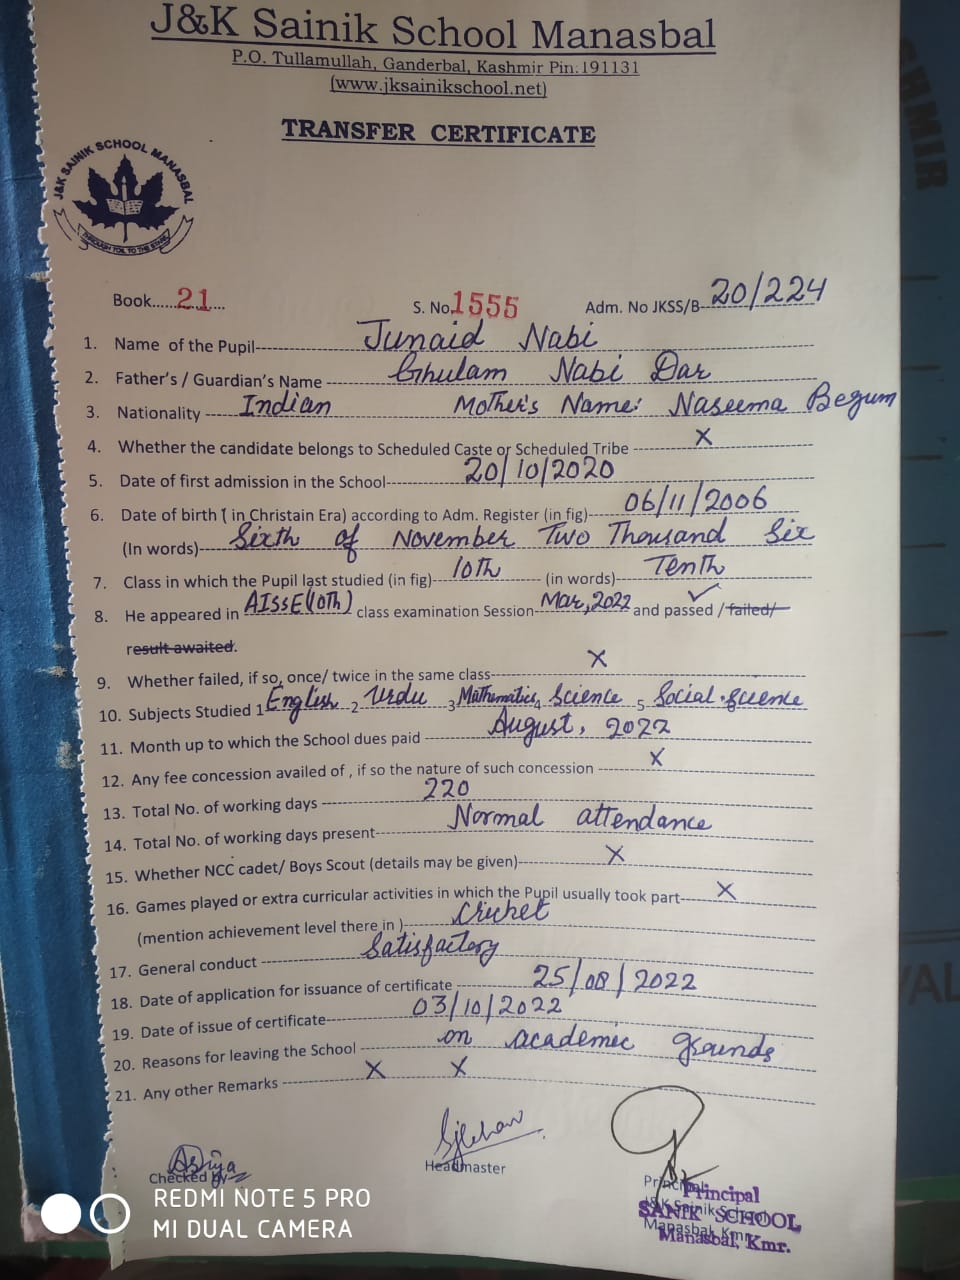 J&K Sainik School Manasbal
P.O. Tullamullah, Ganderbal, Kashmir Pin:191131
(www.jksainikschool.net)
TRANSFER CERTIFICATE
J&K SAINIK SCHOOL MANASBAL
THROUGH TOIL TO THE STARS
Book......21.... S. No.1555 Adm. No JKSS/B--20/224
1. Name of the Pupil---Junaid Nabi
2. Father's / Guardian's Name ---Ghulam Nabi Dar
3. Nationality ---Indian Mother's Name: Naseema Begum
4. Whether the candidate belongs to Scheduled Caste or Scheduled Tribe ---X
5. Date of first admission in the School---20/10/2020
6. Date of birth ( in Christain Era) according to Adm. Register (in fig)---06/11/2006
(In words)---Sixth of November Two Thousand Six
7. Class in which the Pupil last studied (in fig)---10th--- (in words)---Tenth
8. He appeared in AISSE(10th) class examination Session---Mar,2022 and passed ✓ / failed/
result awaited.
9. Whether failed, if so, once/ twice in the same class---X
10. Subjects Studied 1 English 2 Urdu 3 Mathematics 4 Science 5 Social Science
11. Month up to which the School dues paid ---August, 2022
12. Any fee concession availed of , if so the nature of such concession ---X
13. Total No. of working days ---220
14. Total No. of working days present---Normal attendance
15. Whether NCC cadet/ Boys Scout (details may be given)---X
16. Games played or extra curricular activities in which the Pupil usually took part---X
(mention achievement level there in )---Cricket
17. General conduct ---Satisfactory
18. Date of application for issuance of certificate ---25/08/2022
19. Date of issue of certificate---03/10/2022
20. Reasons for leaving the School ---on academic grounds
21. Any other Remarks ---X X
Asiya
Checked by
Headmaster
Principal
J&K Sainik School
Manasbal Kmr.
Principal
SANIK SCHOOL
Manasbal, Kmr.
REDMI NOTE 5 PRO
MI DUAL CAMERA